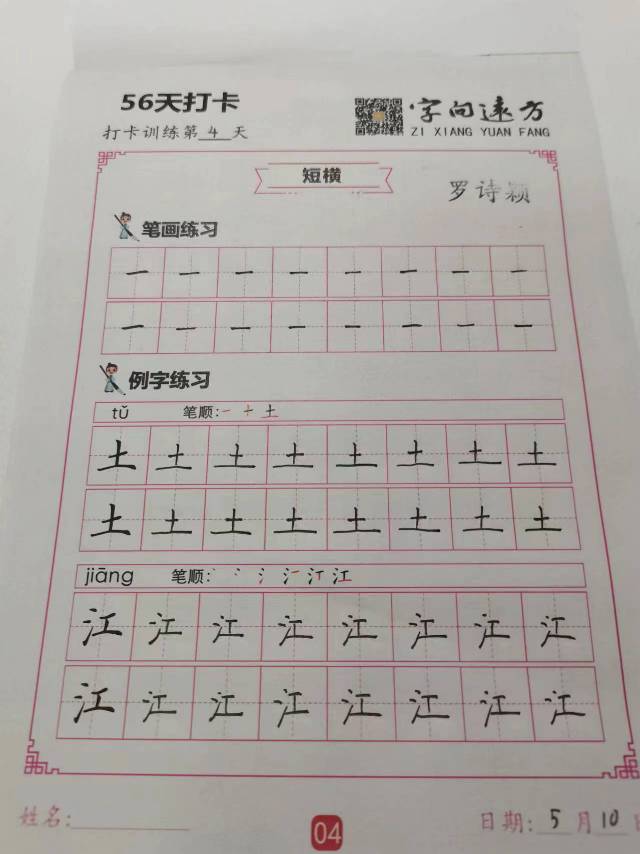 56天打卡
字向遠方
打卡训练第4天
ZI XIANG YUAN FANG
短横
罗诗颖
笔画练习
一一一一一一一一
一一一一一一一一
例字练习
tǔ 笔顺:一十土
土土土土土土土土
土土土土土土土土
jiāng 笔顺:丶冫氵氵汀江
江江江江江江江江
江江江江江江江江
姓名:
04
日期:5月10日